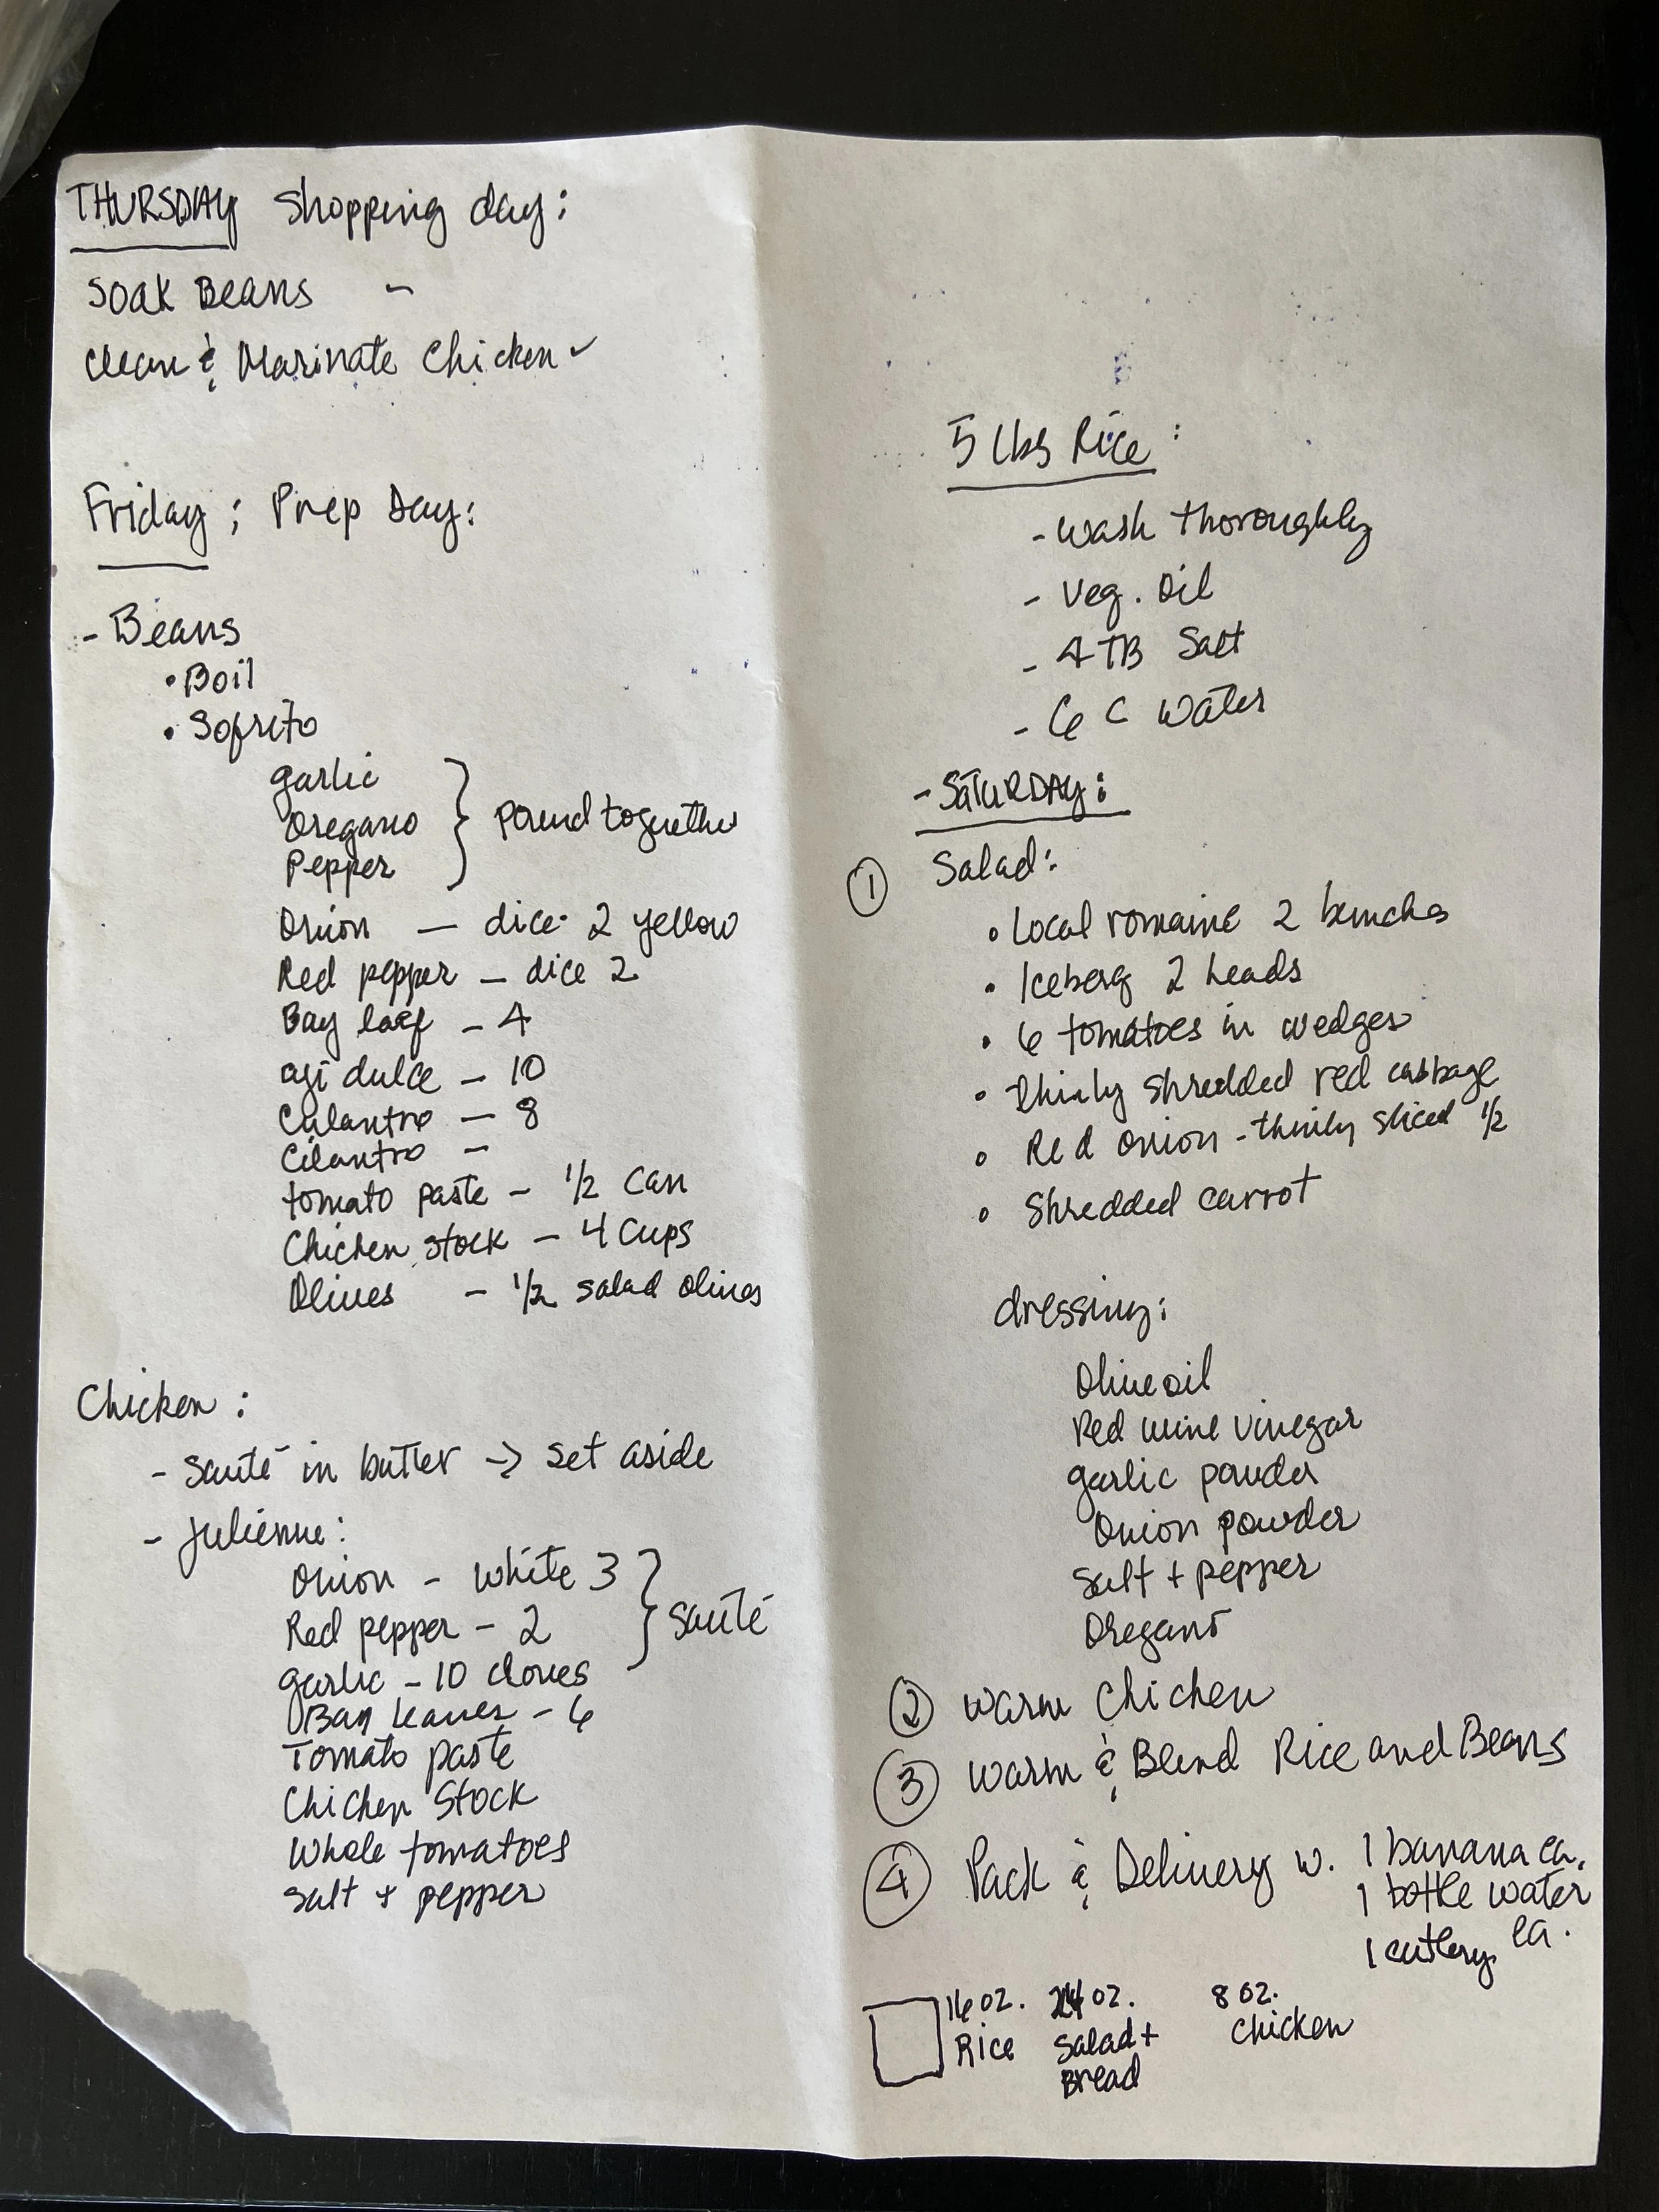 THURSDAY Shopping day:
Soak Beans -
Clean & Marinate Chicken ✓
Friday; Prep Day:
- Beans
• Boil
• Sofrito
garlic
Oregano } Pound together
Pepper
Onion — dice 2 yellow
Red pepper — dice 2
Bay leaf - 4
agi dulce - 10
Culantro - 8
Cilantro -
tomato paste - 1/2 can
Chicken stock - 4 Cups
Olives - 1/2 salad olives
Chicken:
- Sauté in butter -> set aside
- Julienne:
Onion - white 3
Red pepper - 2 } Sauté
garlic - 10 cloves
Bay leaves - 6
Tomato paste
Chicken Stock
Whole tomatoes
Salt + pepper
5 lbs Rice:
- Wash thoroughly
- Veg. Oil
- 4 TB Salt
- 6 C Water
- SATURDAY:
① Salad:
• Local romaine 2 bunches
• Iceberg 2 heads
• 6 tomatoes in wedges
• thinly shredded red cabbage
• Red onion - thinly sliced 1/2
• Shredded carrot
dressing:
Olive oil
Red wine vinegar
garlic powder
Onion powder
Salt + pepper
Oregano
② Warm Chicken
③ Warm & Blend Rice and Beans
④ Pack & Delivery w. 1 banana ea.
1 bottle water ea.
1 cutlery
16 oz. 24 oz. 8 oz.
Rice Salad + Chicken
Bread